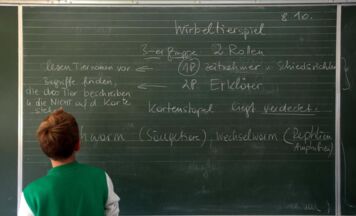 8.10.
Wirbeltierspiel
3-er gruppe 2 Rollen
lesen Tiernamen vor ← 1P Zeitnehmer u. Schiedsrichter
Begriffe finden, ← 2P Erklärer
die das Tier beschreiben
u. die NICHT auf d. Karte
stehen
Kartenstapel liegt verdeckt.
warm (Säugetiere), Wechselwarm (Reptilien
Amphibien)